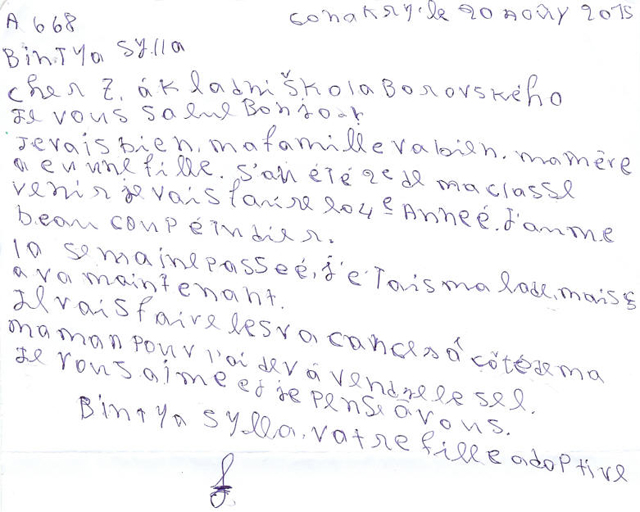 A 668 conakry. le 20 Aoûy 2015
BinTYa SYlla
cher Z. ák ladni Škola Borovského
Je vous salue Bonjour
Je vais bien. ma famille va bien. ma mère
a eu une fille. J'ai été 2e de ma classe
venir je vais faire la 4e Anneé. J'aime
beau coup étudier.
la semaine passeé, j'e Tais ma lade, mais s
a va maintenant.
Je vais faire les va cances á côté de ma
maman pour l'ai der á vendre le sel.
Je vous aime et je pense â vous.
BinTYa SYlla. votre fille adoptive